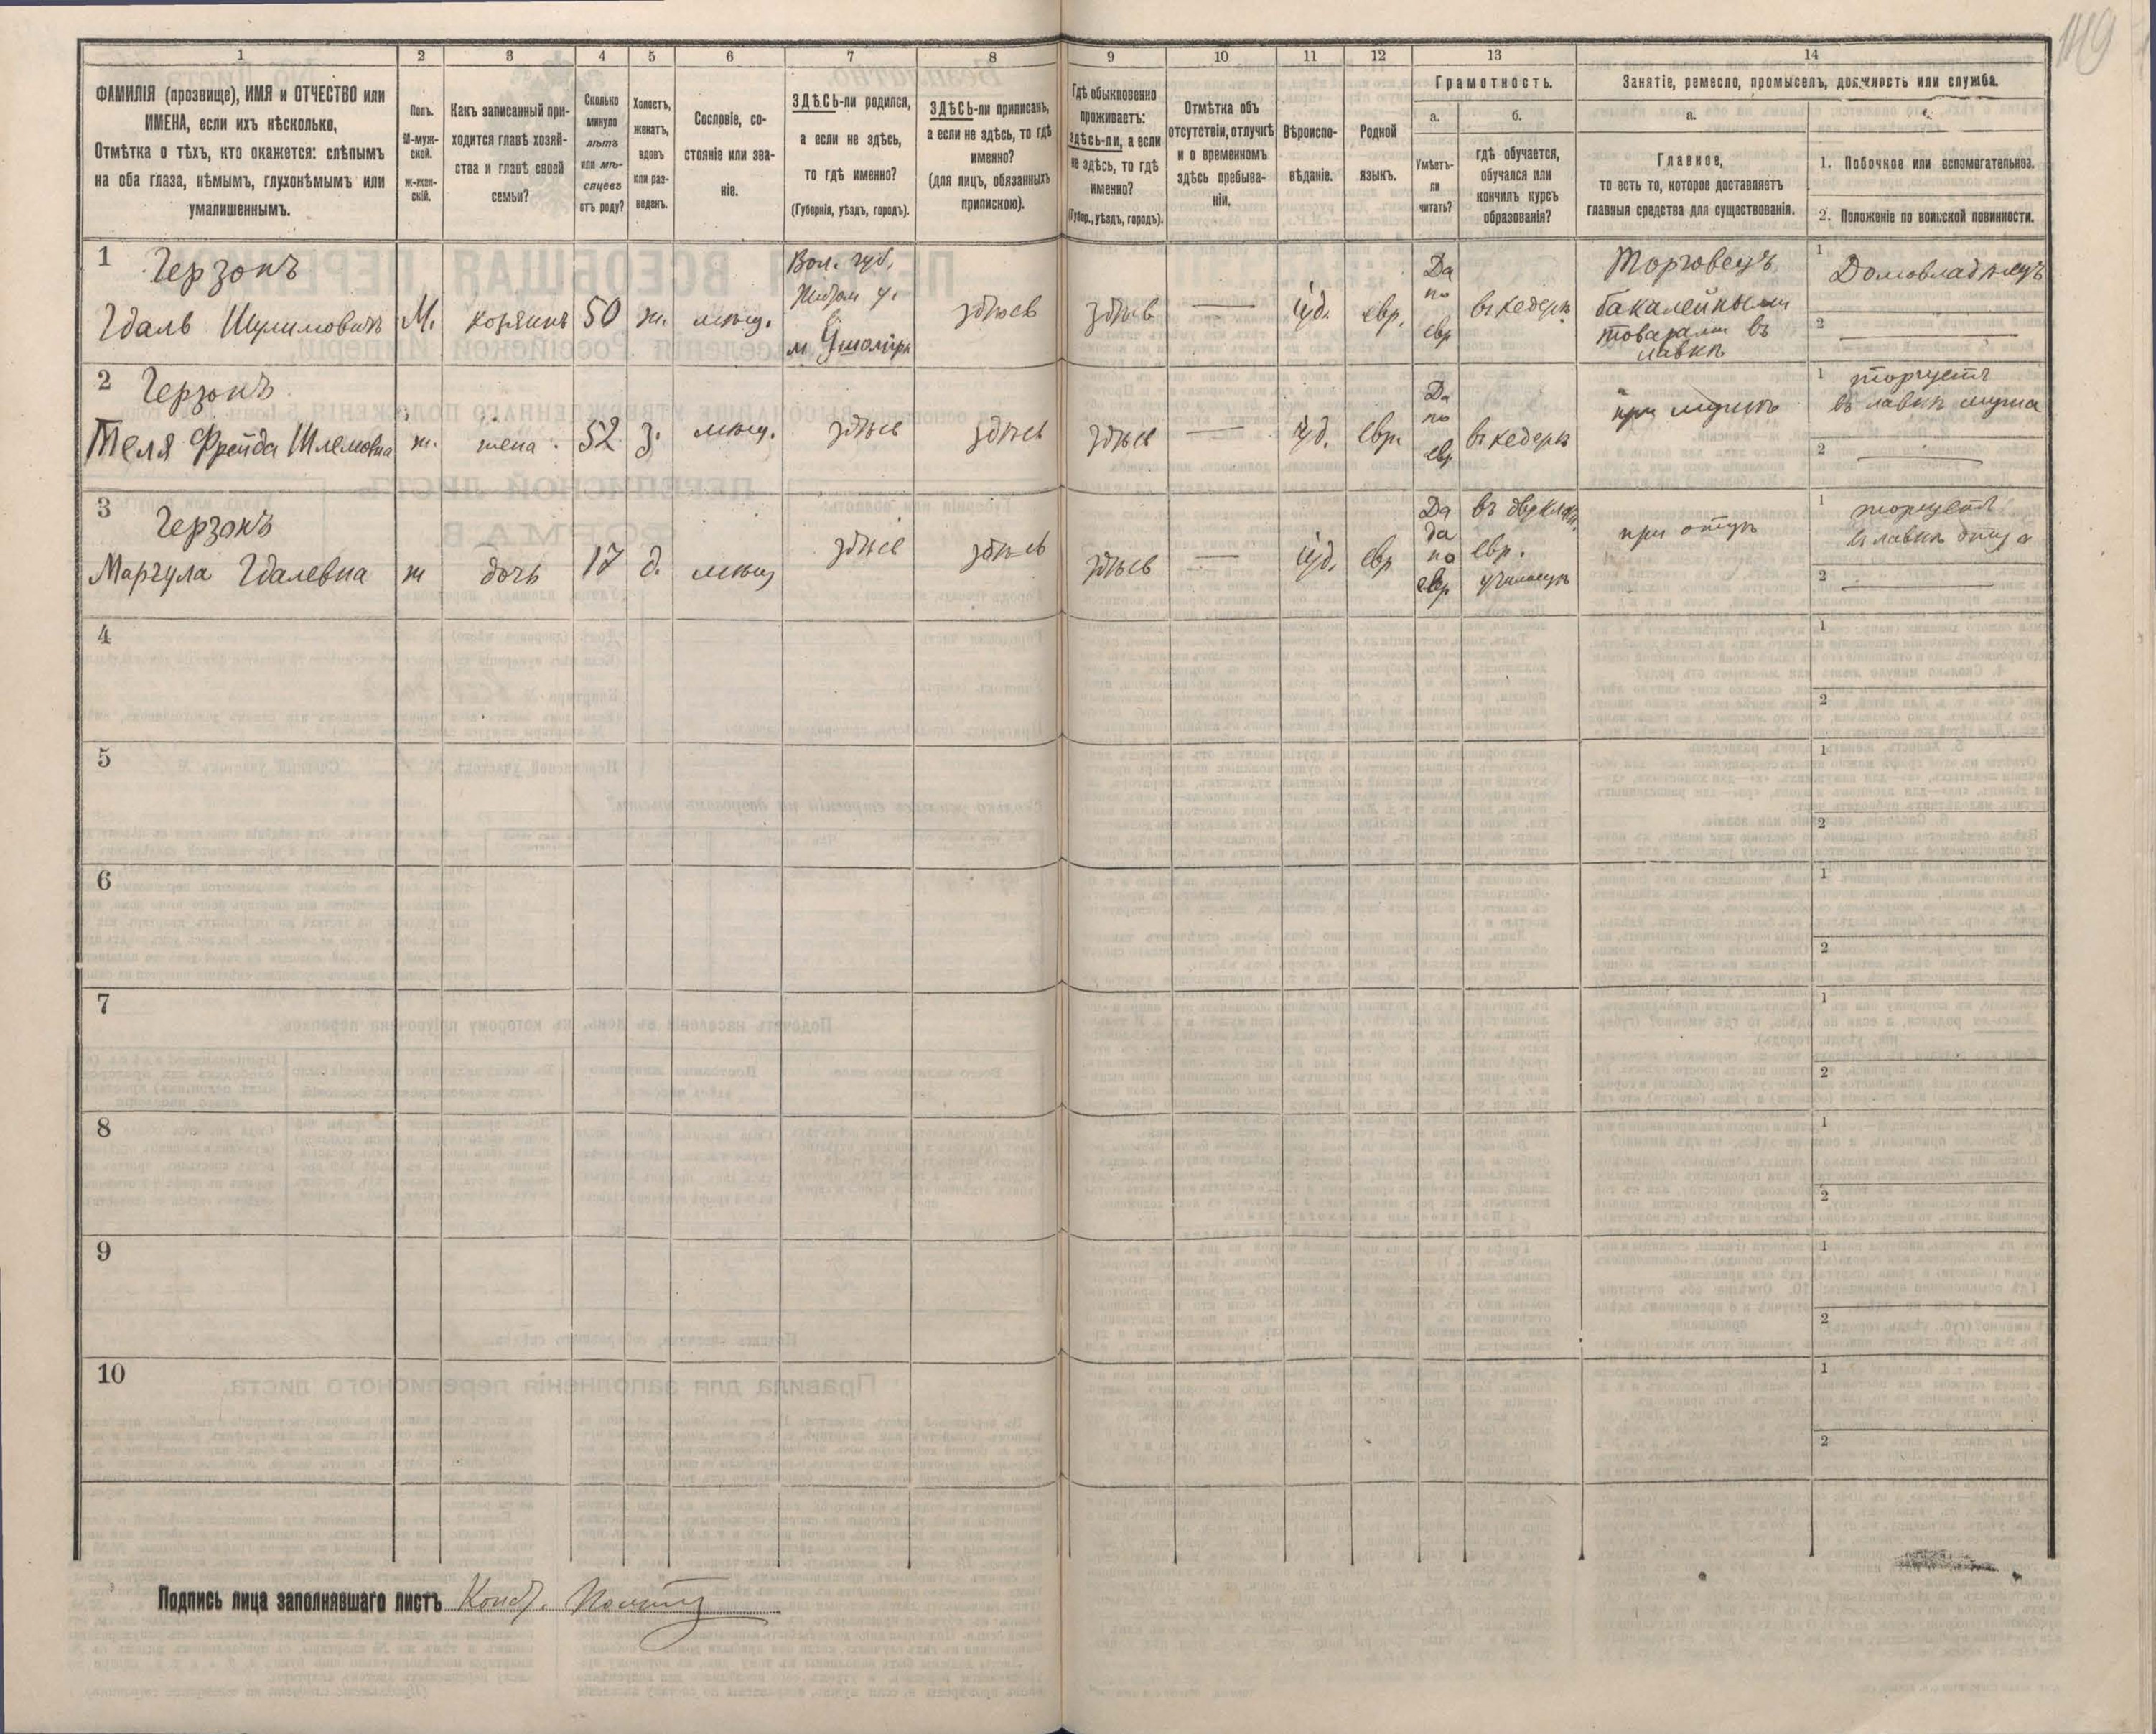 149
1 2 3 4 5 6 7 8 9 10 11 12 13 14
ФАМИЛІЯ (прозвище), ИМЯ и ОТЧЕСТВО или
ИМЕНА, если ихъ нѣсколько,
Отмѣтка о тѣхъ, кто окажется: слѣпымъ
на оба глаза, нѣмымъ, глухонѣмымъ или
умалишеннымъ.
Полъ.
М-муж-
ской.
Ж-жен-
скій.
Какъ записанный при-
ходится главѣ хозяй-
ства и главѣ своей
семьи?
Сколько
минуло
лѣтъ
или мѣ-
сяцевъ
отъ роду?
Холостъ,
женатъ,
вдовъ
или раз-
веденъ.
Сословіе, со-
стояніе или зва-
ніе.
ЗДѢСЬ-ли родился,
а если не здѣсь,
то гдѣ именно?
(Губернія, уѣздъ, городъ).
ЗДѢСЬ-ли приписанъ,
а если не здѣсь, то гдѣ
именно?
(для лицъ, обязанныхъ
припискою).
Гдѣ обыкновенно
проживаетъ:
здѣсь-ли, а если
не здѣсь, то гдѣ
именно?
(Губер., уѣздъ, городъ).
Отмѣтка объ
отсутствіи, отлучкѣ
и о временномъ
здѣсь пребыва-
ніи.
Вѣроиспо-
вѣданіе.
Родной
языкъ.
Грамотность.
а.
Умѣетъ-
ли
читать?
б.
гдѣ обучается,
обучался или
кончилъ курсъ
образованія?
Занятіе, ремесло, промыселъ, должность или служба.
а.
Главное,
то есть то, которое доставляетъ
главныя средства для существованія.
1. Побочное или вспомогательное.
2. Положеніе по воинской повинности.
1 Герзонъ
Гдаль Шулимовичъ
М.
хозяинъ
50
ж.
мѣщ.
Вол. губ,
Житом у.
здѣсь
здѣсь
—
іуд.
евр.
Да
по
евр
въ хедерѣ
Торговецъ
бакалейными
товарами въ
лавкѣ
1 Домовладѣлецъ
2 —
2 Герзонъ
Теля Фрейда Шлемовна
ж.
жена.
52
з.
мѣщ.
здѣсь
здѣсь
здѣсь
—
іуд.
евр.
Да
по
евр
въ хедерѣ
при мужѣ
1 торгуетъ
въ лавкѣ мужа
2 —
3 Герзонъ
Маргула Гдалевна
ж
дочь
17
д.
мѣщ
здѣсь
здѣсь
здѣсь
—
іуд.
евр
Да
да
по
евр
въ двуклас.
евр.
училищѣ
при отцѣ
1 торгуетъ
въ лавкѣ отца
2 —
4
1
2
5
1
2
6
1
2
7
1
2
8
1
2
9
1
2
10
1
2
Подпись лица заполнявшаго листъ